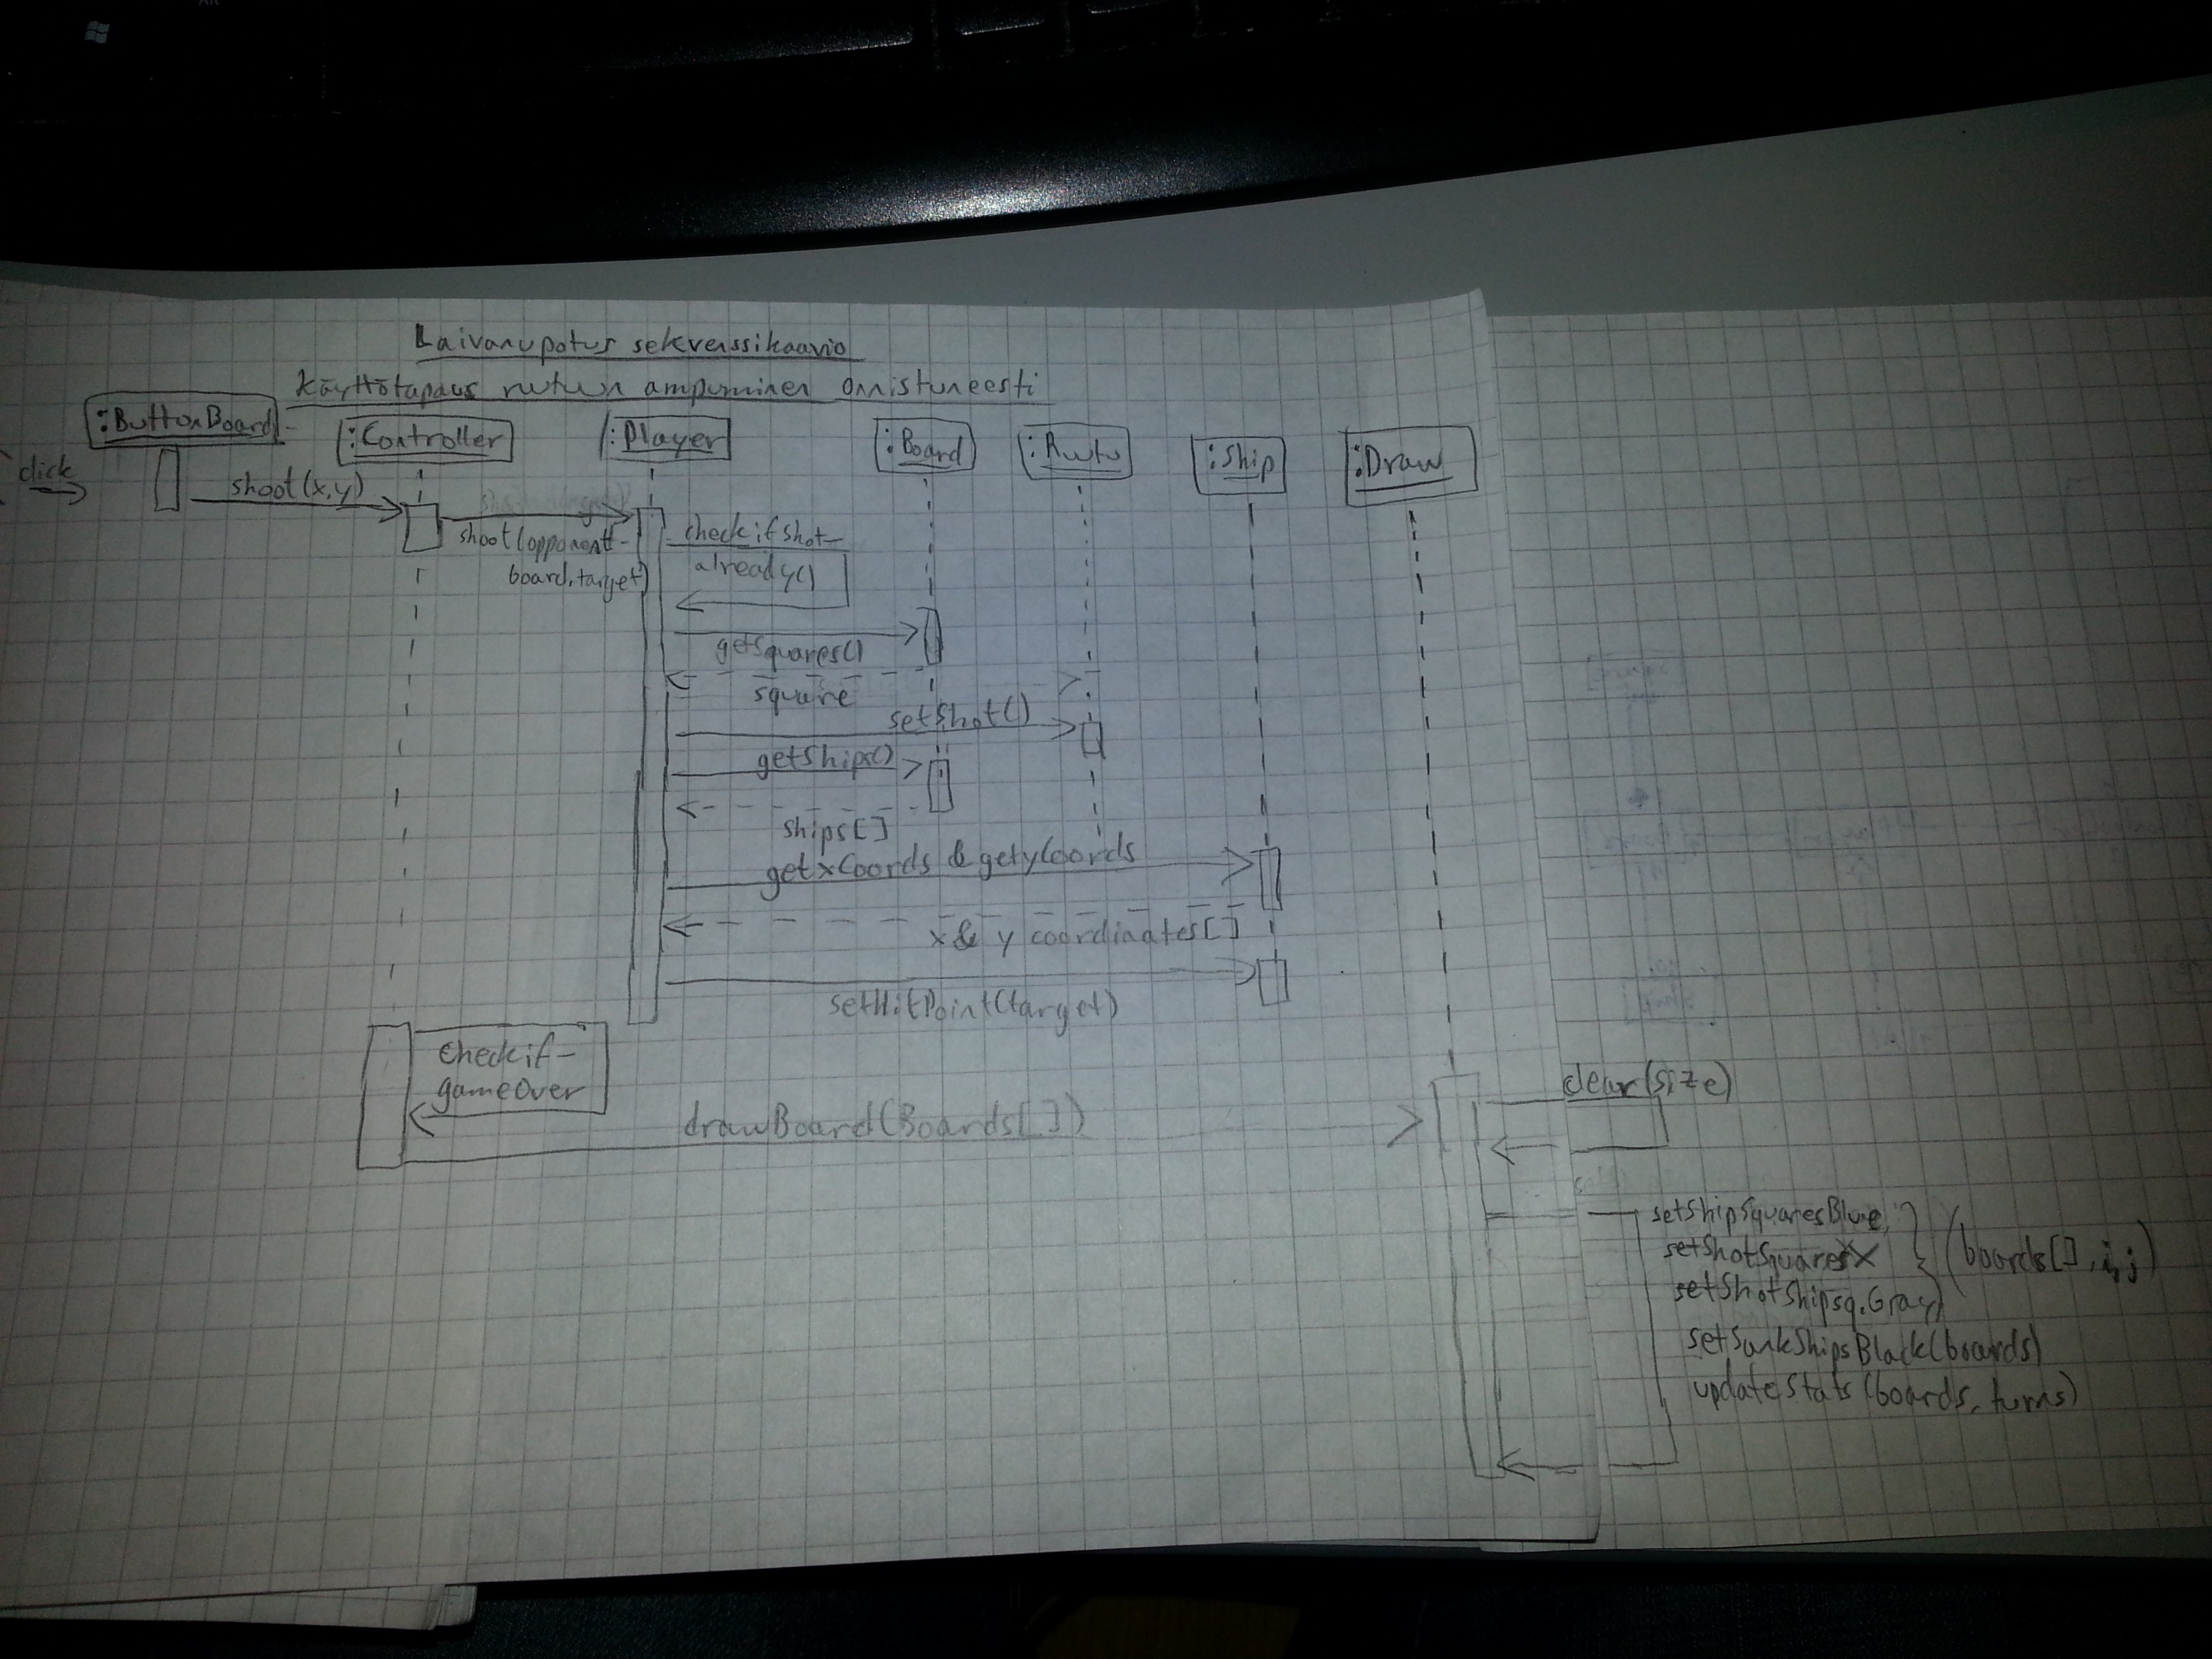 Laivanupotus sekvenssikaavio
käyttötapaus ruutuun ampuminen onnistuneesti
:ButtonBoard
:Controller
:Player
:Board
:Ruutu
:Ship
:Draw
click
shoot(x,y)
shoot(opponent-
board,target)
checkifShot-
already()
getSquares()
square
setShot()
getShips()
ships[]
getxCoords & getyCoords
x & y coordinates[]
setHitPoint(target)
checkif-
gameOver
drawBoard(Boards[])
clear(size)
setShipSquaresBlue,
setShotSquaresX
setShotShipsq.Gray
(boards[],i,j)
setSunkShipsBlack(boards)
updateStats(boards, turns)